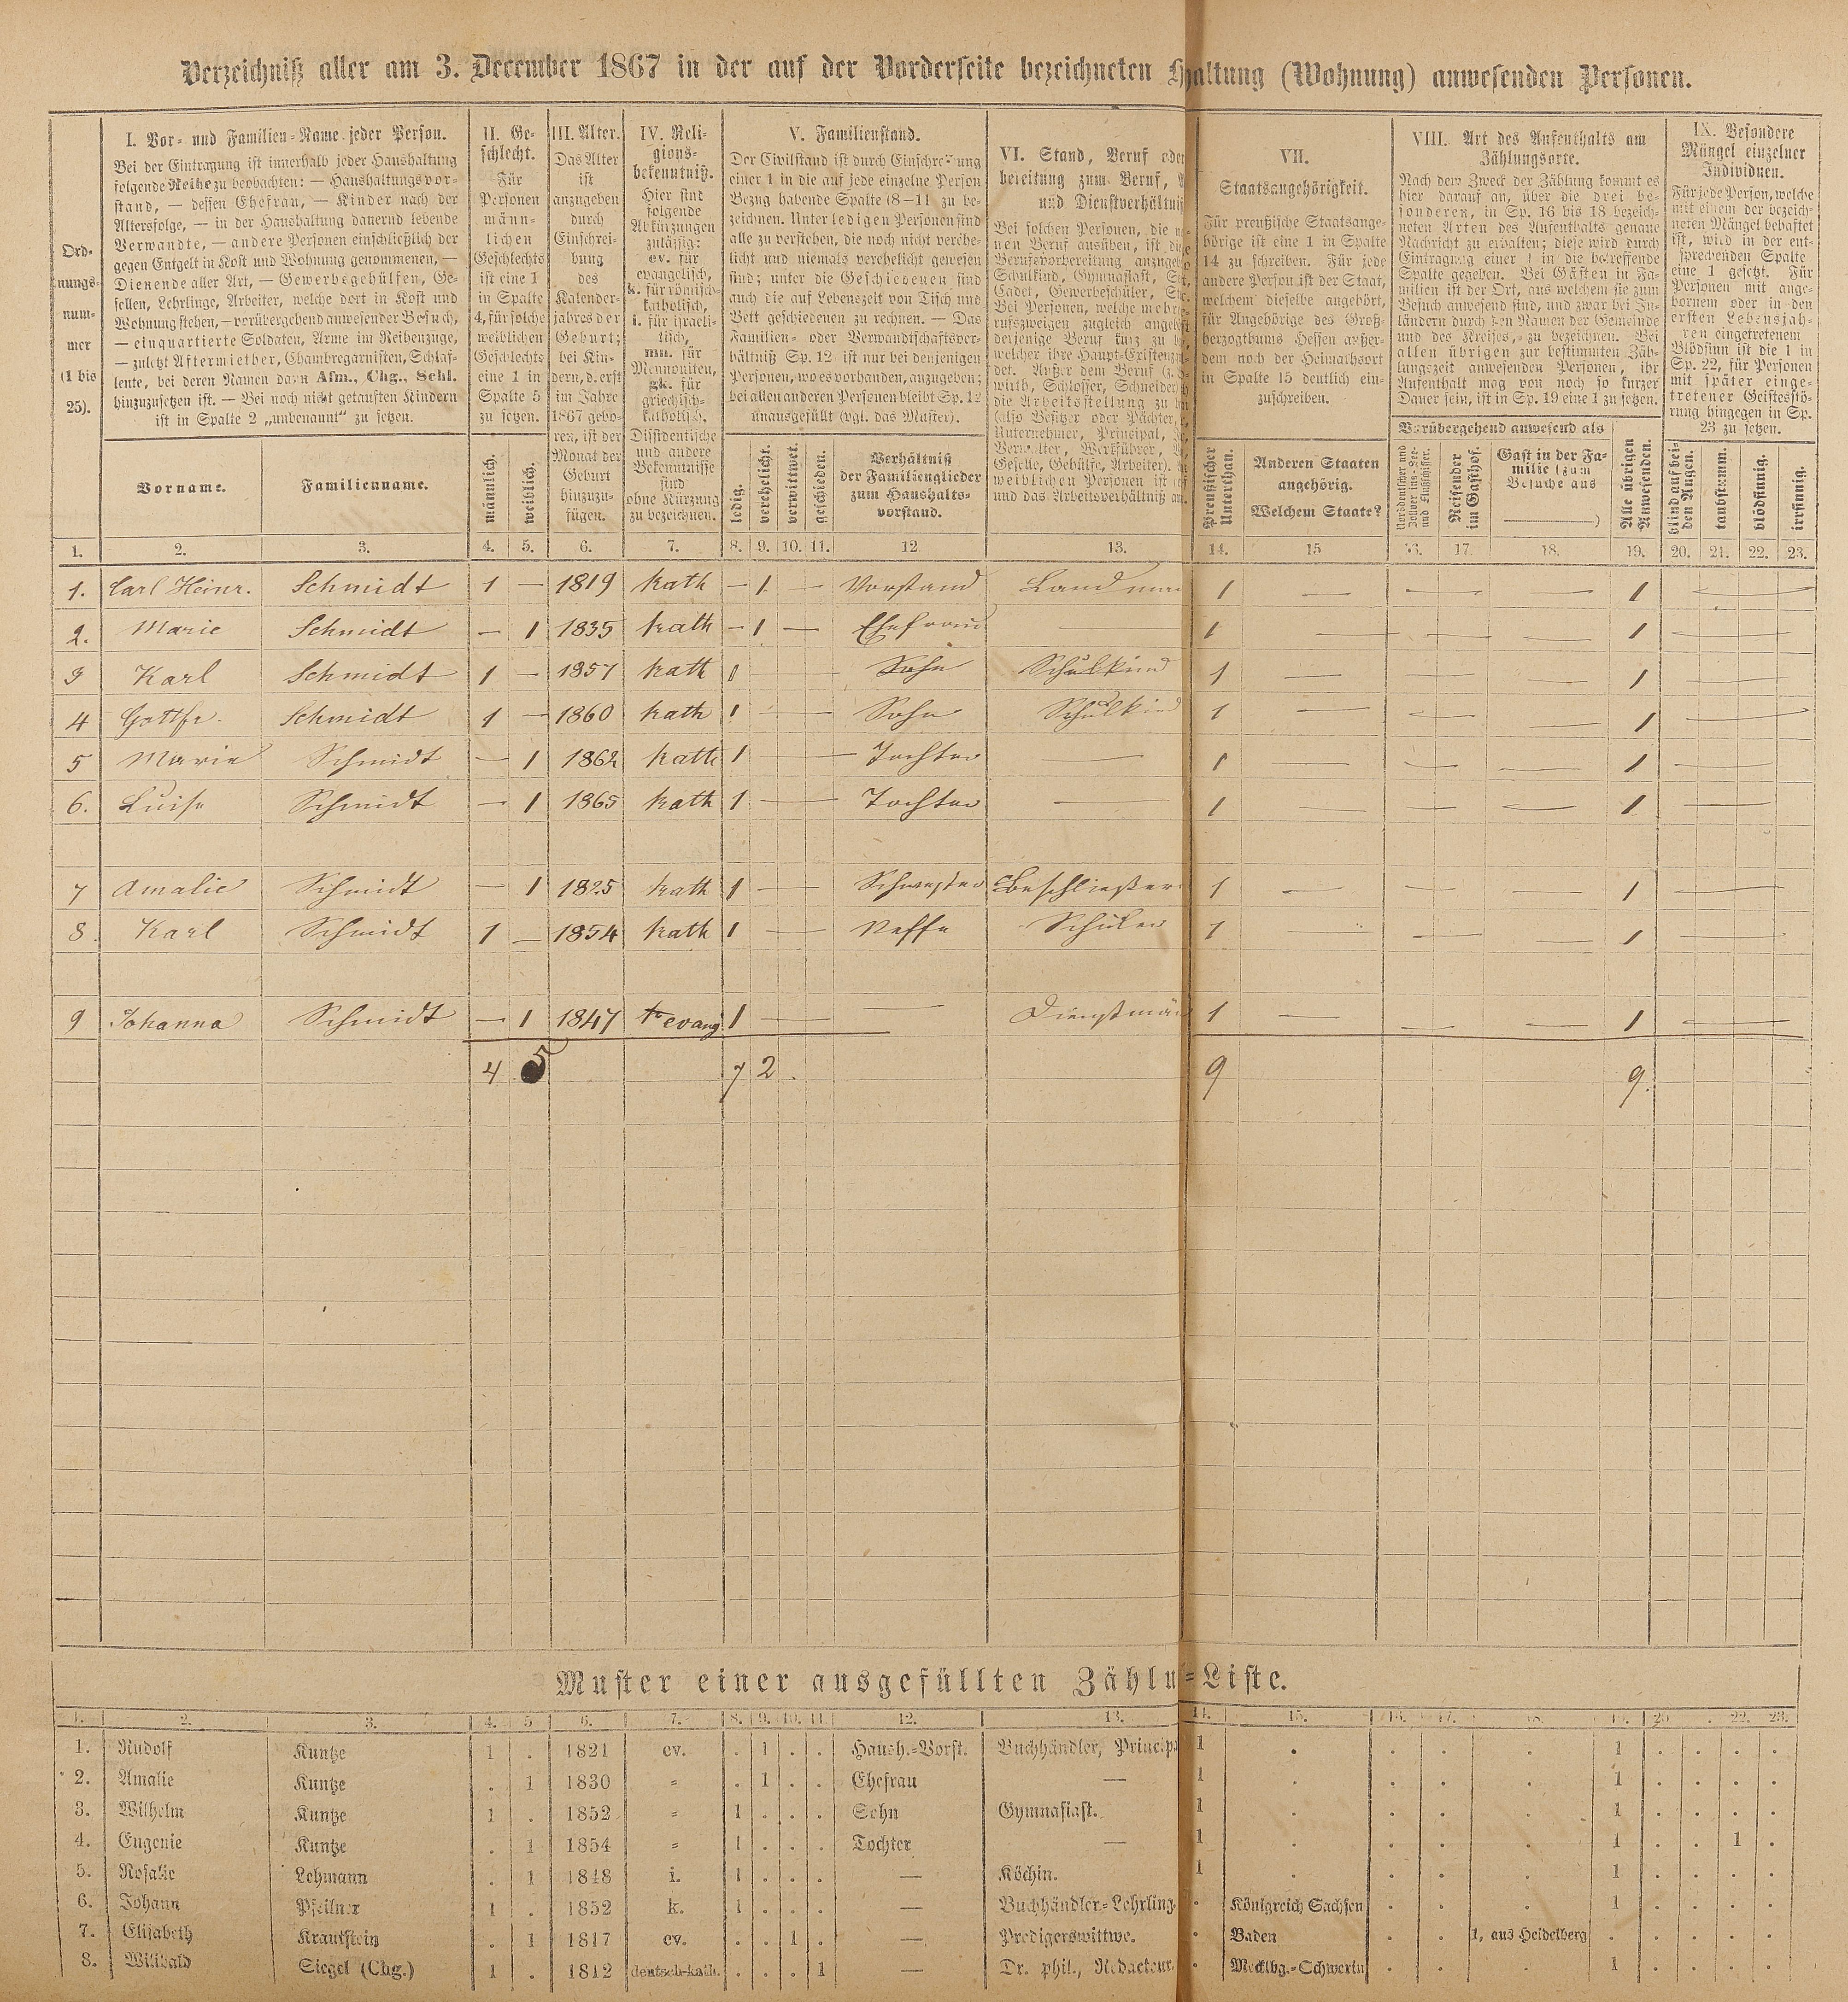 Verzeichniß aller am 3. December 1867 in der auf der Vorderseite bezeichneten Haushaltung (Wohnung) anwesenden Personen.
Ord-
nungs-
num-
mer
(1 bis
25).
I. Vor- und Familien-Name jeder Person.
Bei der Eintragung ist innerhalb jeder Haushaltung
folgende Reihe zu beobachten: — Haushaltungsvor-
stand, — dessen Ehefrau, — Kinder nach der
Altersfolge, — in der Haushaltung dauernd lebende
Verwandte, — andere Personen einschließlich der
gegen Entgelt in Kost und Wohnung genommenen, —
Dienende aller Art, — Gewerbsgehülfen, Ge-
sellen, Lehrlinge, Arbeiter, welche dort in Kost und
Wohnung stehen, — vorübergehend anwesender Besuch,
— einquartierte Soldaten, Arme im Reihenzuge,
— zuletzt Aftermiether, Chambregarnisten, Schlaf-
leute, bei deren Namen dann Afm., Chg., Schl.
hinzuzusetzen ist. — Bei noch nicht getauften Kindern
ist in Spalte 2 „unbenannt“ zu setzen.
Vorname.
Familienname.
II. Ge-
schlecht.
Für
Personen
männ-
lichen
Geschlechts
ist eine 1
in Spalte
4, für solche
weiblichen
Geschlechts
eine 1 in
Spalte 5
zu setzen.
männlich.
weiblich.
III. Alter.
Das Alter
ist
anzugeben
durch
Einschrei-
bung
des
Kalender-
jahres der
Geburt;
bei Kin-
dern, d. erst
im Jahre
1867 gebo-
ren, ist der
Monat der
Geburt
hinzuzu-
fügen.
IV. Reli-
gions-
bekenntniß.
Hier sind
folgende
Abkürzungen
zulässig:
ev. für
evangelisch,
k. für römisch-
katholisch,
i. für israeli-
tisch,
mn. für
Mennoniten,
gk. für
griechisch-
katholisch.
Dissidentische
und andere
Bekenntnisse
sind
ohne Kürzung
zu bezeichnen.
V. Familienstand.
Der Civilstand ist durch Einschreibung
einer 1 in die auf jede einzelne Person
Bezug habende Spalte (8—11) zu be-
zeichnen. Unter ledigen Personen sind
alle zu verstehen, die noch nicht verehe-
licht und niemals verehelicht gewesen
sind; unter die Geschiedenen sind
auch die auf Lebenszeit von Tisch und
Bett geschiedenen zu rechnen. — Das
Familien- oder Verwandtschaftsver-
hältniß Sp. 12 ist nur bei denjenigen
Personen, wo es vorhanden, anzugeben;
bei allen anderen Personen bleibt Sp. 12
unausgefüllt (vgl. das Muster).
ledig.
verehelicht.
verwittwet.
geschieden.
Verhältniß
der Familienglieder
zum Haushalts-
vorstand.
VI. Stand, Beruf oder
bereitung zum Beruf,
und Dienstverhältniß
Bei solchen Personen, die
nen Beruf ausüben, ist die
Berufsvorbereitung
Schulkind, Gymnasiast,
Cadet, Gewerbeschüler,
Bei Personen, welche mehre
rufszweigen zugleich
derjenige Beruf kurz zu
welcher ihre Haupt-Existenz
det. Außer dem Beruf (z.
wirth, Schlosser, Schneider
die Arbeitsstellung zu
(also Besitzer oder Pächter,
Unternehmer, Principal,
Verwalter, Werkführer,
Geselle, Gehülfe, Arbeiter).
weiblichen Personen ist
und das Arbeitsverhältniß
VII.
Staatsangehörigkeit.
Für preußische Staatsange-
hörige ist eine 1 in Spalte
14 zu schreiben. Für jede
andere Person ist der Staat,
welchem dieselbe angehört,
für Angehörige des Groß-
herzogthums Hessen außer-
dem noch der Heimathsort
in Spalte 15 deutlich ein-
zuschreiben.
Preußischer
Unterthan.
Anderen Staaten
angehörig.
Welchem Staate?
VIII. Art des Aufenthalts am
Zählungsorte.
Nach dem Zweck der Zählung kommt es
hier darauf an, über die drei be-
sonderen, in Sp. 16 bis 18 bezeich-
neten Arten des Aufenthalts genaue
Nachricht zu erhalten; diese wird durch
Eintragung einer 1 in die betreffende
Spalte gegeben. Bei Gästen in Fa-
milien ist der Ort, aus welchem sie zum
Besuch anwesend sind, und zwar bei In-
ländern durch den Namen der Gemeinde
und des Kreises, zu bezeichnen. Bei
allen übrigen zur bestimmten Zäh-
lungszeit anwesenden Personen, ihr
Aufenthalt mag von noch so kurzer
Dauer sein, ist in Sp. 19 eine 1 zu setzen.
Vorübergehend anwesend als
Norddeutscher und
Zollvereins-See-
und Flußschiffer.
Reisender
im Gasthof.
Gast in der Fa-
milie (zum
Besuche aus
)
Alle übrigen
Anwesenden.
IX. Besondere
Mängel einzelner
Individuen.
Für jede Person, welche
mit einem der bezeich-
neten Mängel behaftet
ist, wird in der ent-
sprechenden Spalte
eine 1 gesetzt. Für
Personen mit ange-
bornem oder in den
ersten Lebensjah-
ren eingetretenem
Blödsinn ist die 1 in
Sp. 22, für Personen
mit später einge-
tretener Geistesstö-
rung hingegen in Sp.
23 zu setzen.
blind auf bei-
den Augen.
taubstumm.
blödsinnig.
irrsinnig.
1. 2. 3. 4. 5. 6. 7. 8. 9. 10. 11. 12. 13. 14. 15 16. 17. 18. 19. 20. 21. 22. 23.
1. Carl Heinr. Schmidt 1 — 1819 kath — 1 — Vorstand Landman 1 — — — — 1 —
2. Marie Schmidt — 1 1835 kath — 1 — Ehefrau — 1 — — — — 1 —
3 Karl Schmidt 1 — 1857 kath 1 — Sohn Schulkind 1 — — — — 1 —
4 Gottfr. Schmidt 1 — 1860 kath 1 — Sohn Schulkind 1 — — — — 1 —
5 Marie Schmidt — 1 1862 kath 1 — Tochter — 1 — — — — 1 —
6. Luise Schmidt — 1 1865 kath 1 — Tochter — 1 — — — — 1 —
7 Amalie Schmidt — 1 1825 kath 1 — Schwester Beschließer 1 — — — — 1 —
8. Karl Schmidt 1 — 1854 kath 1 — Neffe Schüler 1 — — — 1 —
9 Johanna Schmidt — 1 1847 evang 1 — — Dienstmä 1 — — — — 1 —
4 5 7 2. 9 9.
Muster einer ausgefüllten Zählungs-Liste.
1. 2. 3. 4. 5. 6. 7. 8. 9. 10. 11. 12. 13. 14. 15. 16. 17. 18. 19. 20 . 22. 23.
1. Rudolf Kuntze 1 . 1821 ev. . 1 . . Haush.-Vorst. Buchhändler, Princip 1 . . . . 1 . . . .
2. Amalie Kuntze . 1 1830 = . 1 . . Ehefrau — 1 . . . . 1 . . . .
3. Wilhelm Kuntze 1 . 1852 = 1 . . . Sohn Gymnasiast. 1 . . . . 1 . . . .
4. Eugenie Kuntze . 1 1854 = 1 . . . Tochter — 1 . . . . 1 . . 1 .
5. Rosalie Lehmann . 1 1848 i. 1 . . . — Köchin. 1 . . . . 1 . . . .
6. Johann Pfeilner 1 . 1852 k. 1 . . . — Buchhändler-Lehrling. . Königreich Sachsen . . . 1 . . . .
7. Elisabeth Krautstein . 1 1817 ev. . . 1 . — Predigerswittwe. . Baden . . 1, aus Heidelberg . . . . .
8. Willibald Siegel (Chg.) 1 . 1812 deutsch-kath. . . . 1 — Dr. phil., Redacteur. . Mecklbg.-Schwerin . . . 1 . . . .